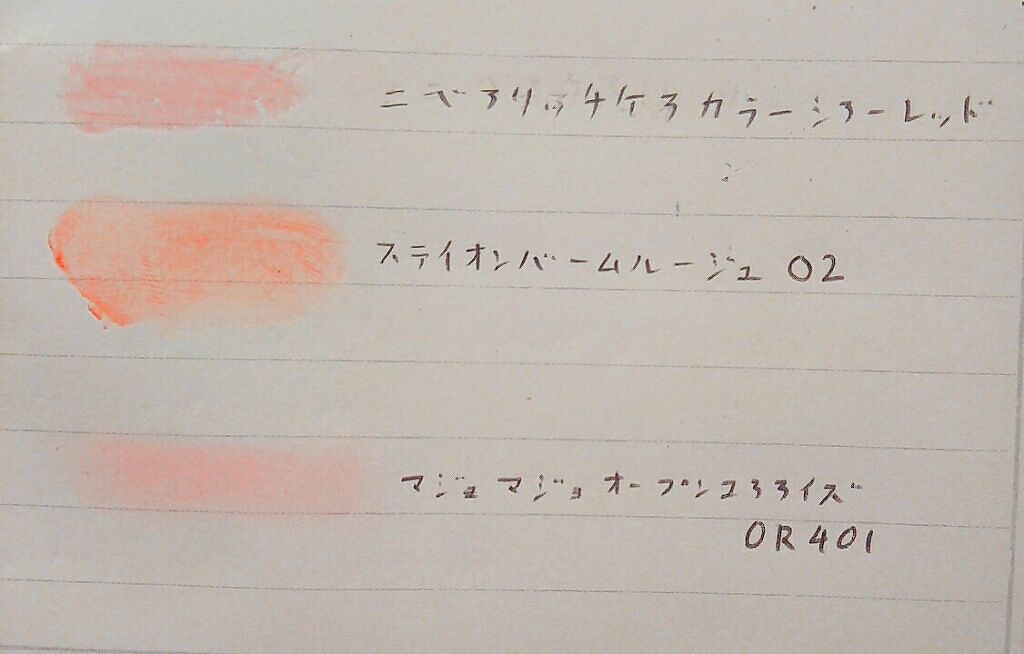 ニベアリッチケアカラーシアーレッド
ステイオンバームルージュ 02
マジョ マジョ オープンユアアイズ
OR401